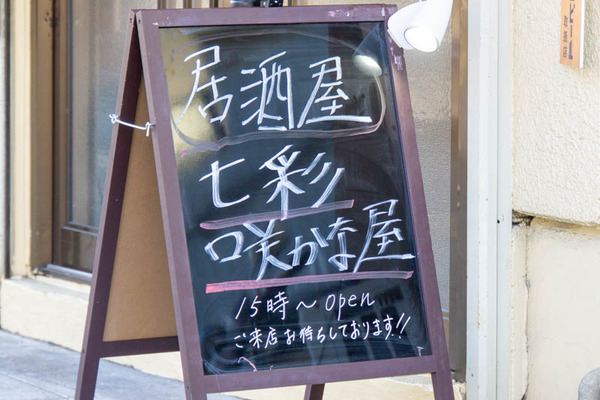 居酒屋
七彩
咲かな屋
15時〜open
ご来店お待ちしております!!